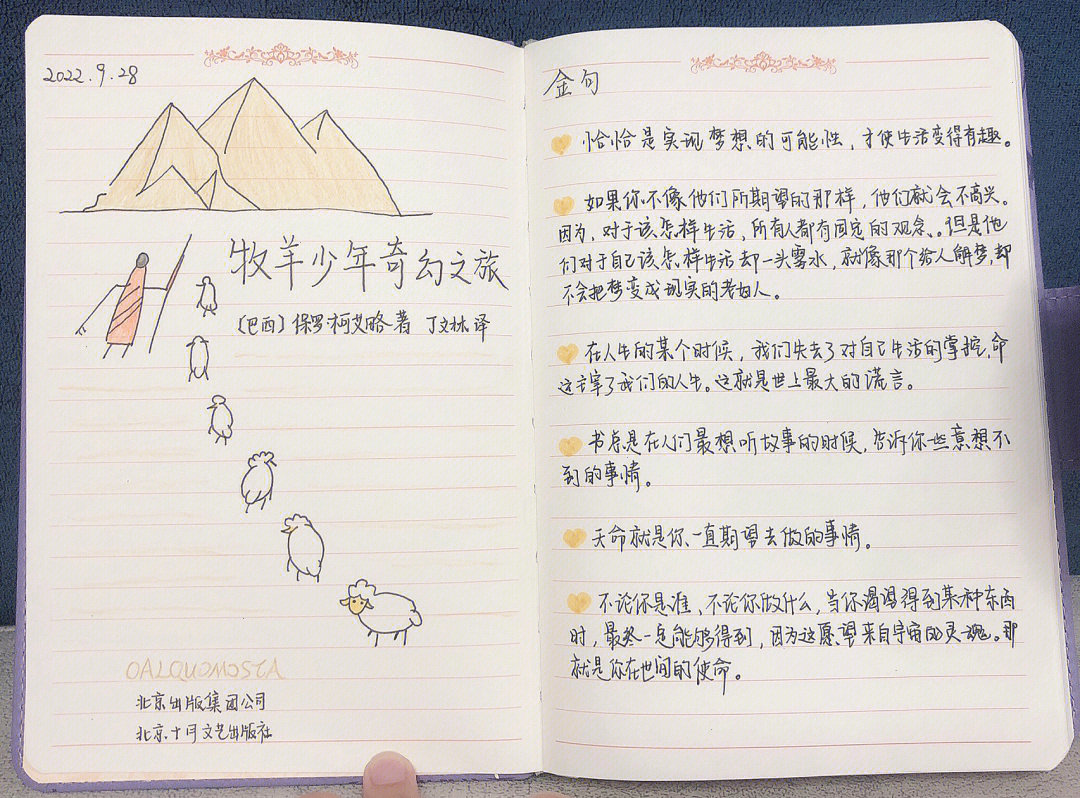 2022.9.28
牧羊少年奇幻之旅
〔巴西〕保罗·柯艾略 著 丁文林 译
OALQUOMOSTA
北京出版集团公司
北京十月文艺出版社
金句
恰恰是实现梦想的可能性，才使生活变得有趣。
如果你不像他们所期望的那样，他们就会不高兴。
因为，对于该怎样生活，所有人都有固定的观念。但是他
们对于自己该怎样生活却一头雾水，就像那个给人解梦，却
不会把梦变成现实的老妇人。
在人生的某个时候，我们失去了对自己生活的掌控，命
运主宰了我们的人生。这就是世上最大的谎言。
书总是在人们最想听故事的时候，告诉你一些意想不
到的事情。
天命就是你一直期望去做的事情。
不论你是谁、不论你做什么，当你渴望得到某种东西
时，最终一定能够得到，因为这愿望来自宇宙的灵魂。那
就是你在世间的使命。